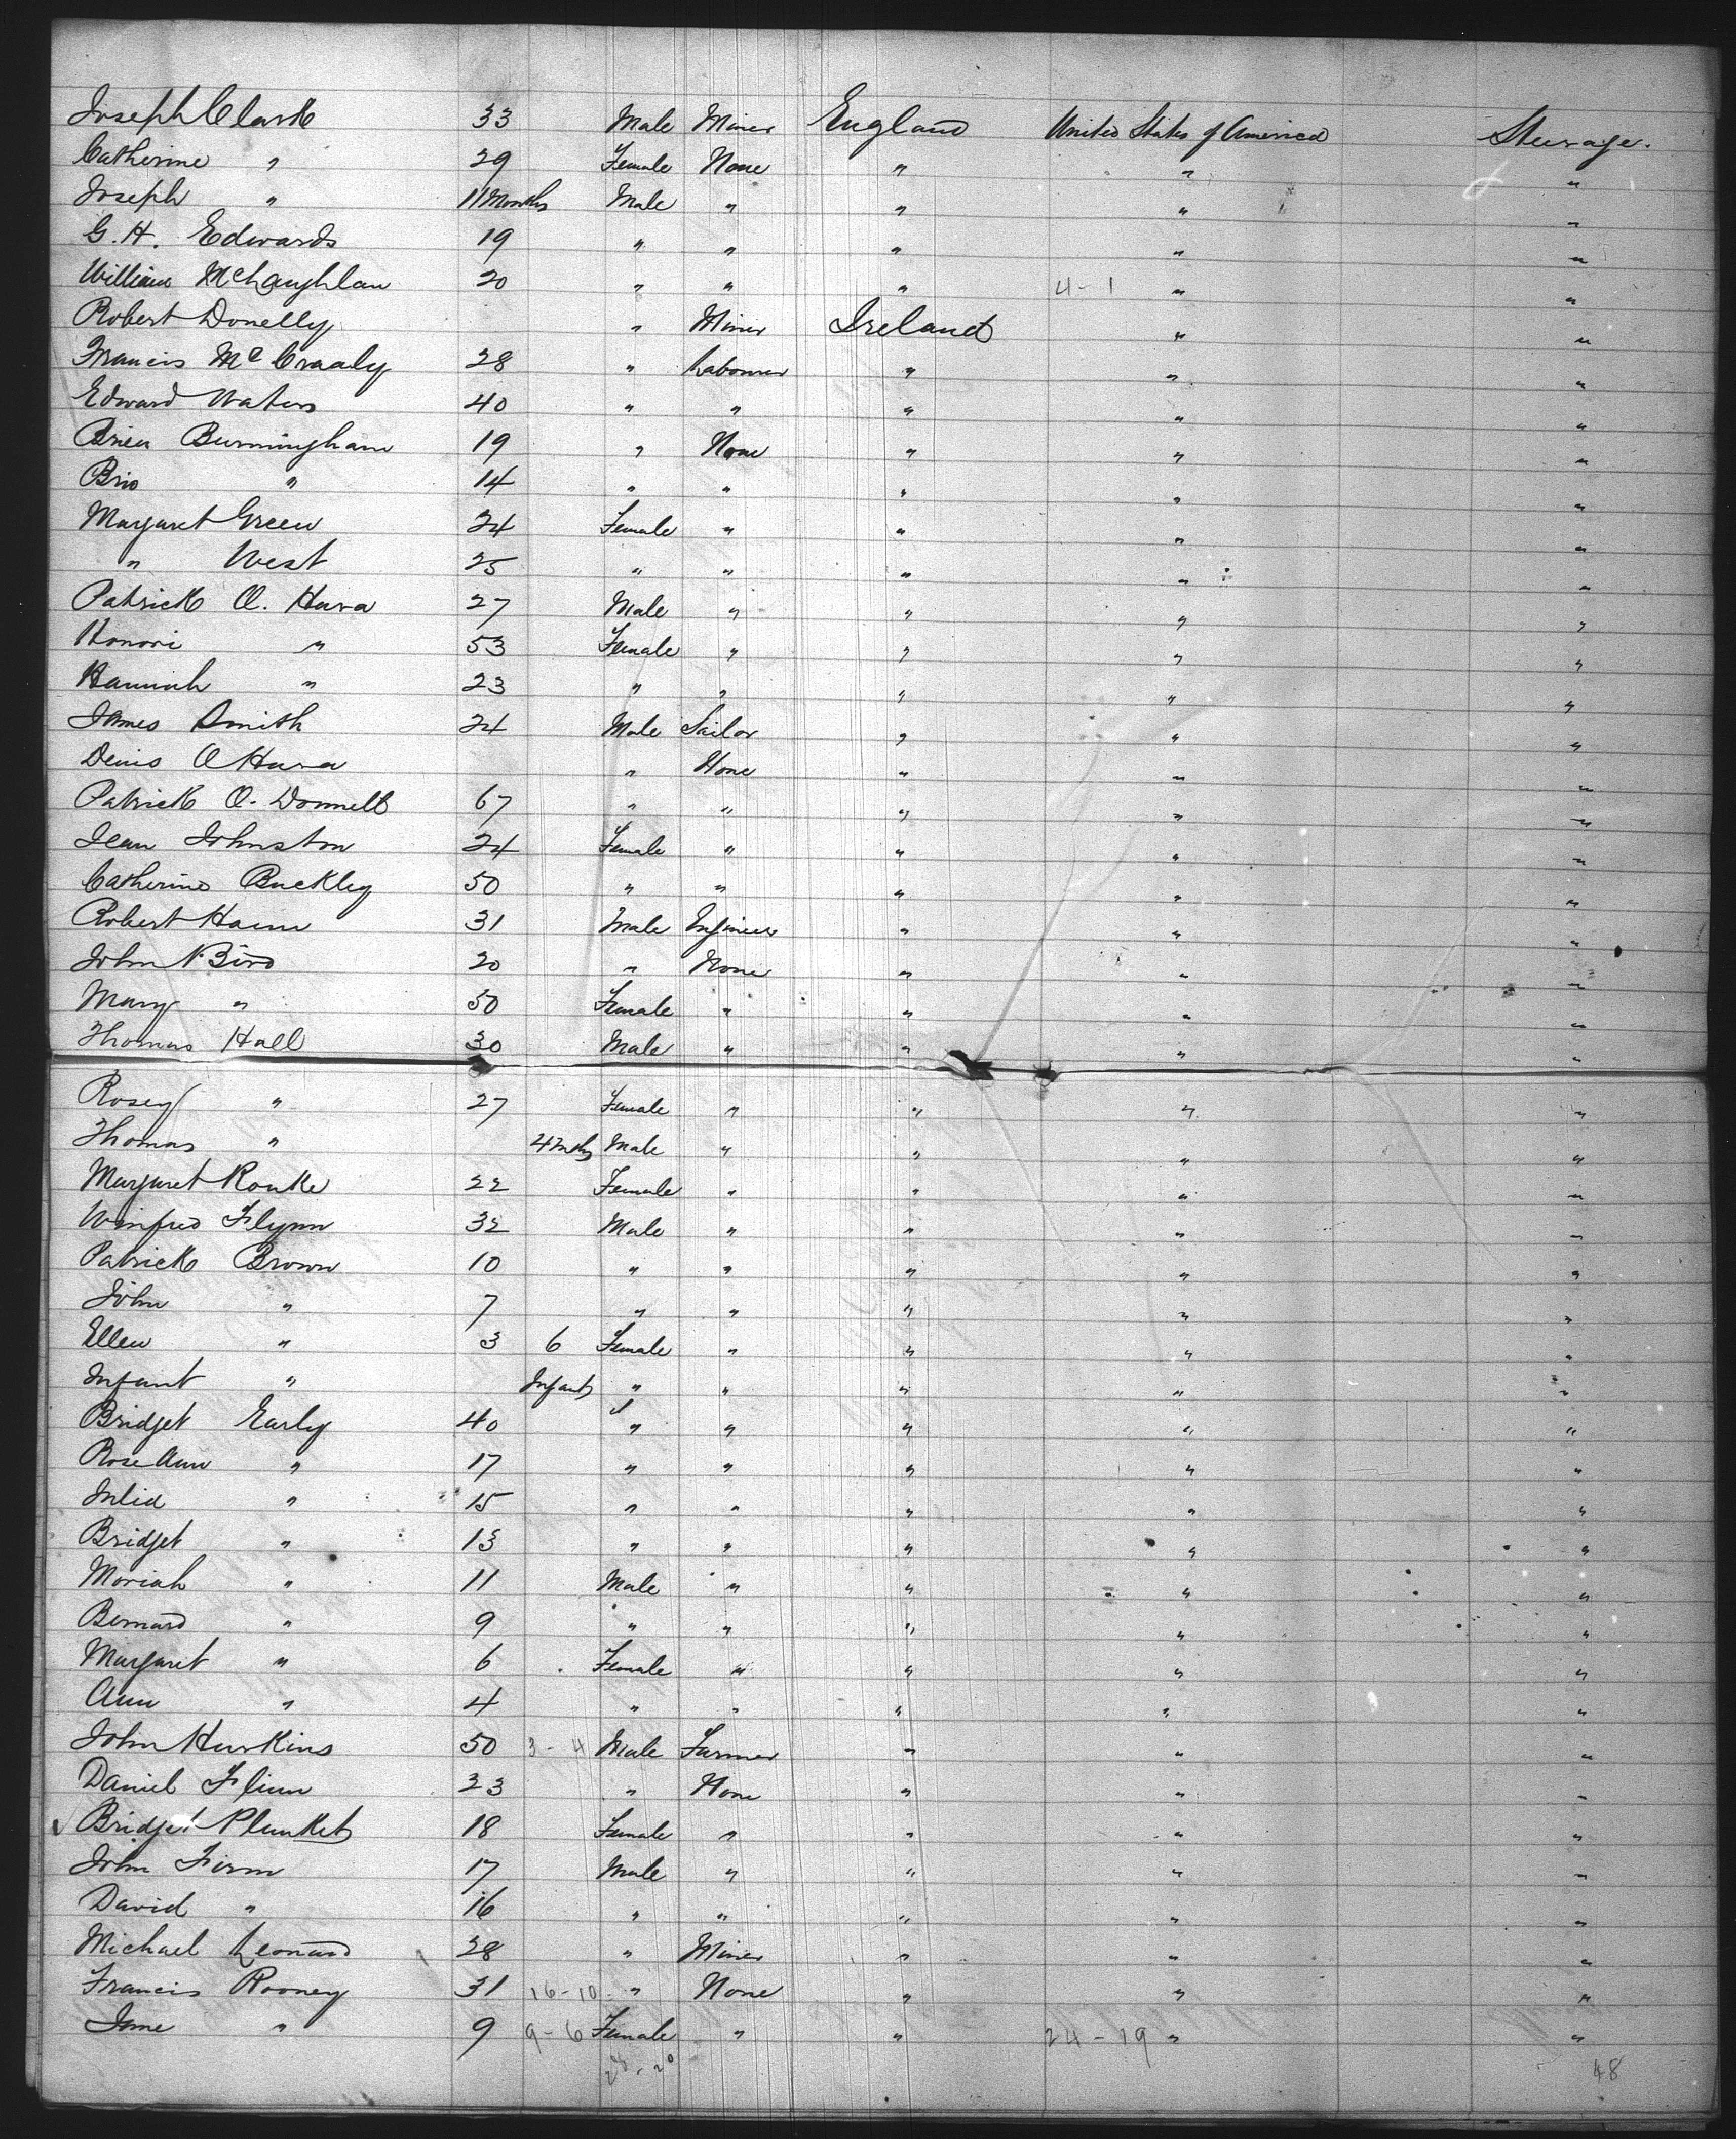 Joseph Clark 33 Male Miner England United States of America Steerage.
Catherine " 29 Female None " " "
Joseph " 11 Months Male " " " "
G. H. Edwards 19 " " " " "
William McLaughlan 20 " " " 4-1 " "
Robert Donelly " Miner Ireland " "
Francis Mc Craaly 28 " Labourer " " "
Edward Waters 40 " " " " "
Brien Burmingham 19 " None " " "
" 14 " " " " "
Margaret Green 24 Female " " " "
" West 25 " " " " "
Patrick O. Hara 27 Male " " " "
Honori " 53 Female " " " "
Hannah " 23 " " " " "
James Smith 24 Male Sailor " " "
Denis O Hara " None " " "
Patrick O. Donnell 67 " " " " "
Jean Johnston 24 Female " " " "
Catherine Buckley 50 " " " " "
Robert 31 Male Engineer " " "
John N. Bird 20 " None " " "
Mary " 50 Female " " " "
Thomas Hall 30 Male " " " "
Rosey " 27 Female " " " "
Thomas " 4 mths Male " " " "
Margaret Rouke 22 Female " " " "
Winfred Flynn 32 Male " " " "
Patrick Brown 10 " " " " "
John " 7 " " " " "
Ellen " 3 6 Female " " " "
Infant " Infant " " " " "
Bridget Early 40 " " " " "
Rose Ann " 17 " " " " "
Julia " 15 " " " " "
Bridget " 13 " " " " "
Moriah " 11 Male " " " "
Bernard " 9 " " " " "
Margaret " 6 Female " " " "
Ann " 4 " " " " "
John Hurkins 50 3-4 Male Farmer " " "
Daniel Flinn 23 " None " " "
Bridget Plunket 18 Female " " " "
John Firm 17 Male " " " "
David " 16 " " " " "
Michael Leonard 28 " Miner " " "
Francis Rooney 31 16-10 " None " " "
Jane " 9 9-6 Female " " 24-19 " "
48